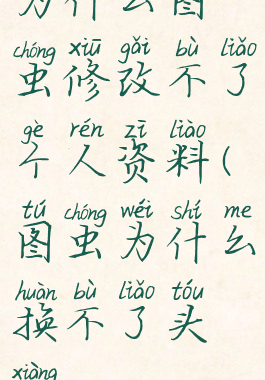 为什么图
chóng xiū gǎi bù liǎo
虫修改不了
gè rén zī liào
个人资料(
tú chóng wéi shí me
图虫为什么
huàn bù liǎo tóu
换不了头
xiàng